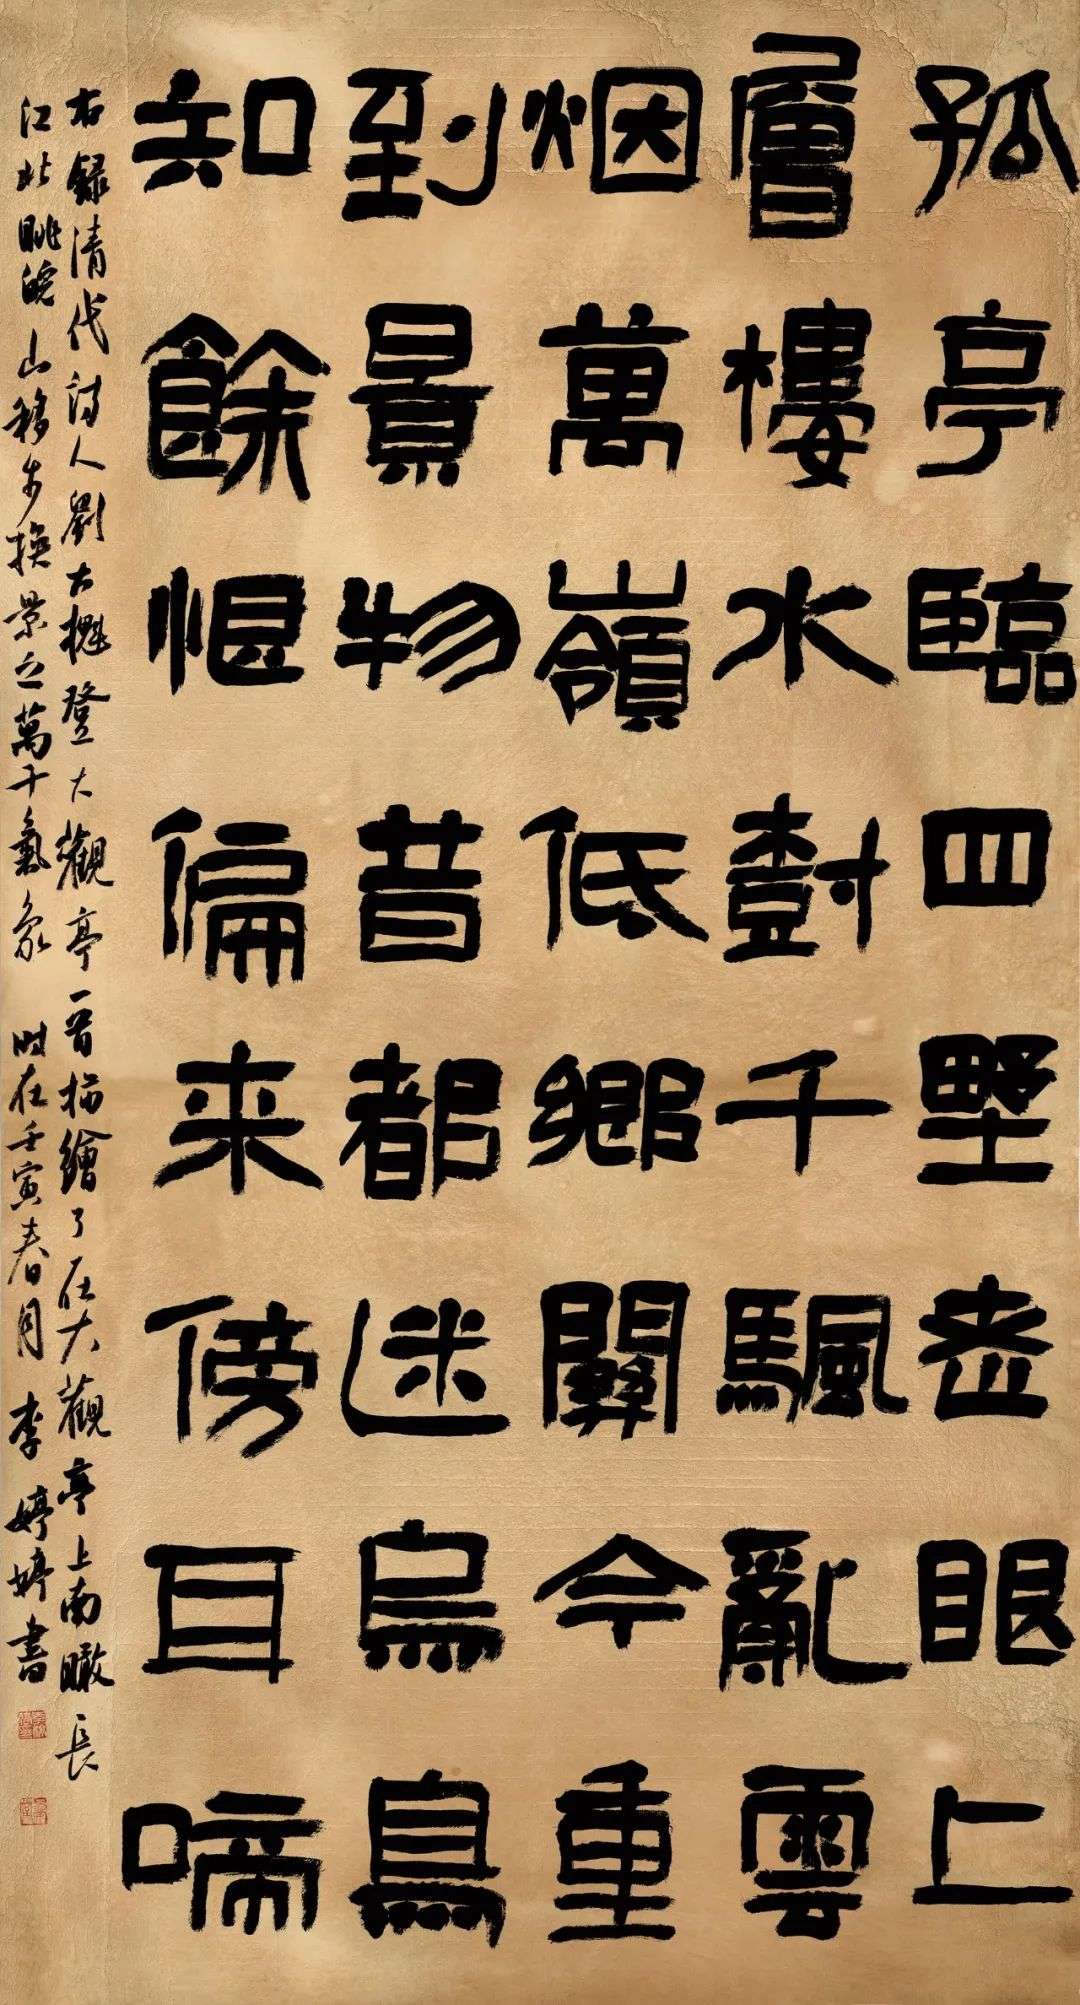 孤亭臨四野老眼上
層樓水樹千颿亂雲
烟萬嶺低鄉關今重
到景物昔都迷烏鳥
知餘恨偏来傍耳啼
右録清代詩人劉大櫆登大觀亭一首描繪了在大觀亭上南瞰長
江北眺皖山移步換景之萬千氣象 時在壬寅春月 李婷婷書